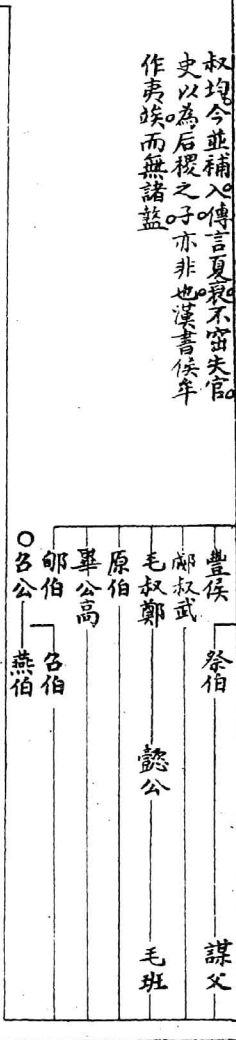 叔均今並補入。傳言夏衰。不窋失官。
史以為后稷之子。亦非也。漢書侯牟
作夷竢。而無諸盩。
豐侯
祭伯
謀父
郕叔武
毛叔鄭
懿公
毛班
原伯
畢公高
郇伯
○召公
召伯
燕伯